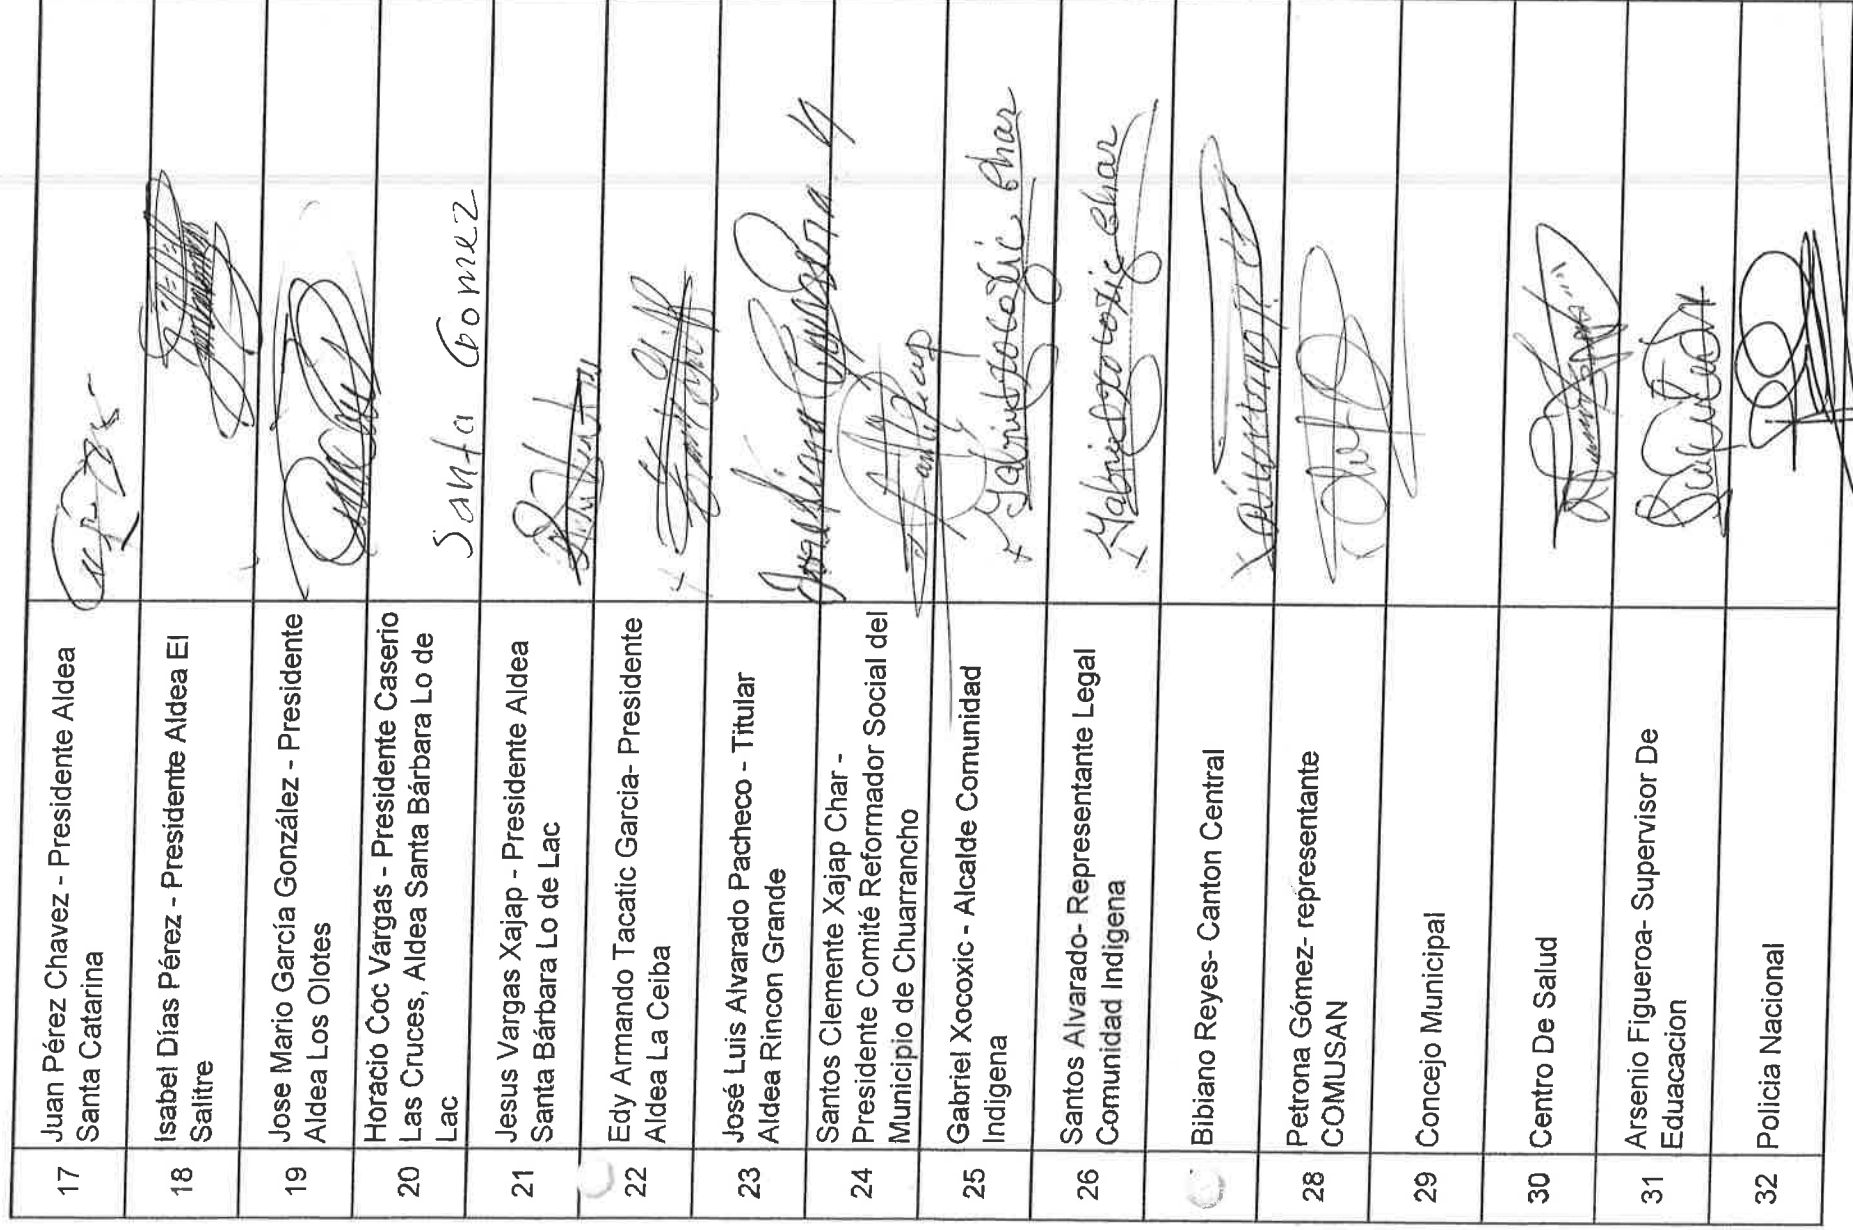 17 Juan Pérez Chavez - Presidente Aldea
Santa Catarina
18 Isabel Días Pérez - Presidente Aldea El
Salitre
19 Jose Mario García González - Presidente
Aldea Los Olotes
20 Horacio Cóc Vargas - Presidente Caserio
Las Cruces, Aldea Santa Bárbara Lo de
Lac
Santa Gomez
21 Jesus Vargas Xajap - Presidente Aldea
Santa Bárbara Lo de Lac
22 Edy Armando Tacatic Garcia- Presidente
Aldea La Ceiba
23 José Luis Alvarado Pacheco - Titular
Aldea Rincon Grande
24 Santos Clemente Xajap Char -
Presidente Comité Reformador Social del
Municipio de Chuarrancho
25 Gabriel Xocoxic - Alcalde Comunidad
Indigena
Gabriel xocoxic Char
26 Santos Alvarado- Representante Legal
Comunidad Indigena
Gabriel xocoxic Char
Bibiano Reyes- Canton Central
28 Petrona Gómez- representante
COMUSAN
29 Concejo Municipal
30 Centro De Salud
31 Arsenio Figueroa- Supervisor De
Eduacacion
32 Policia Nacional